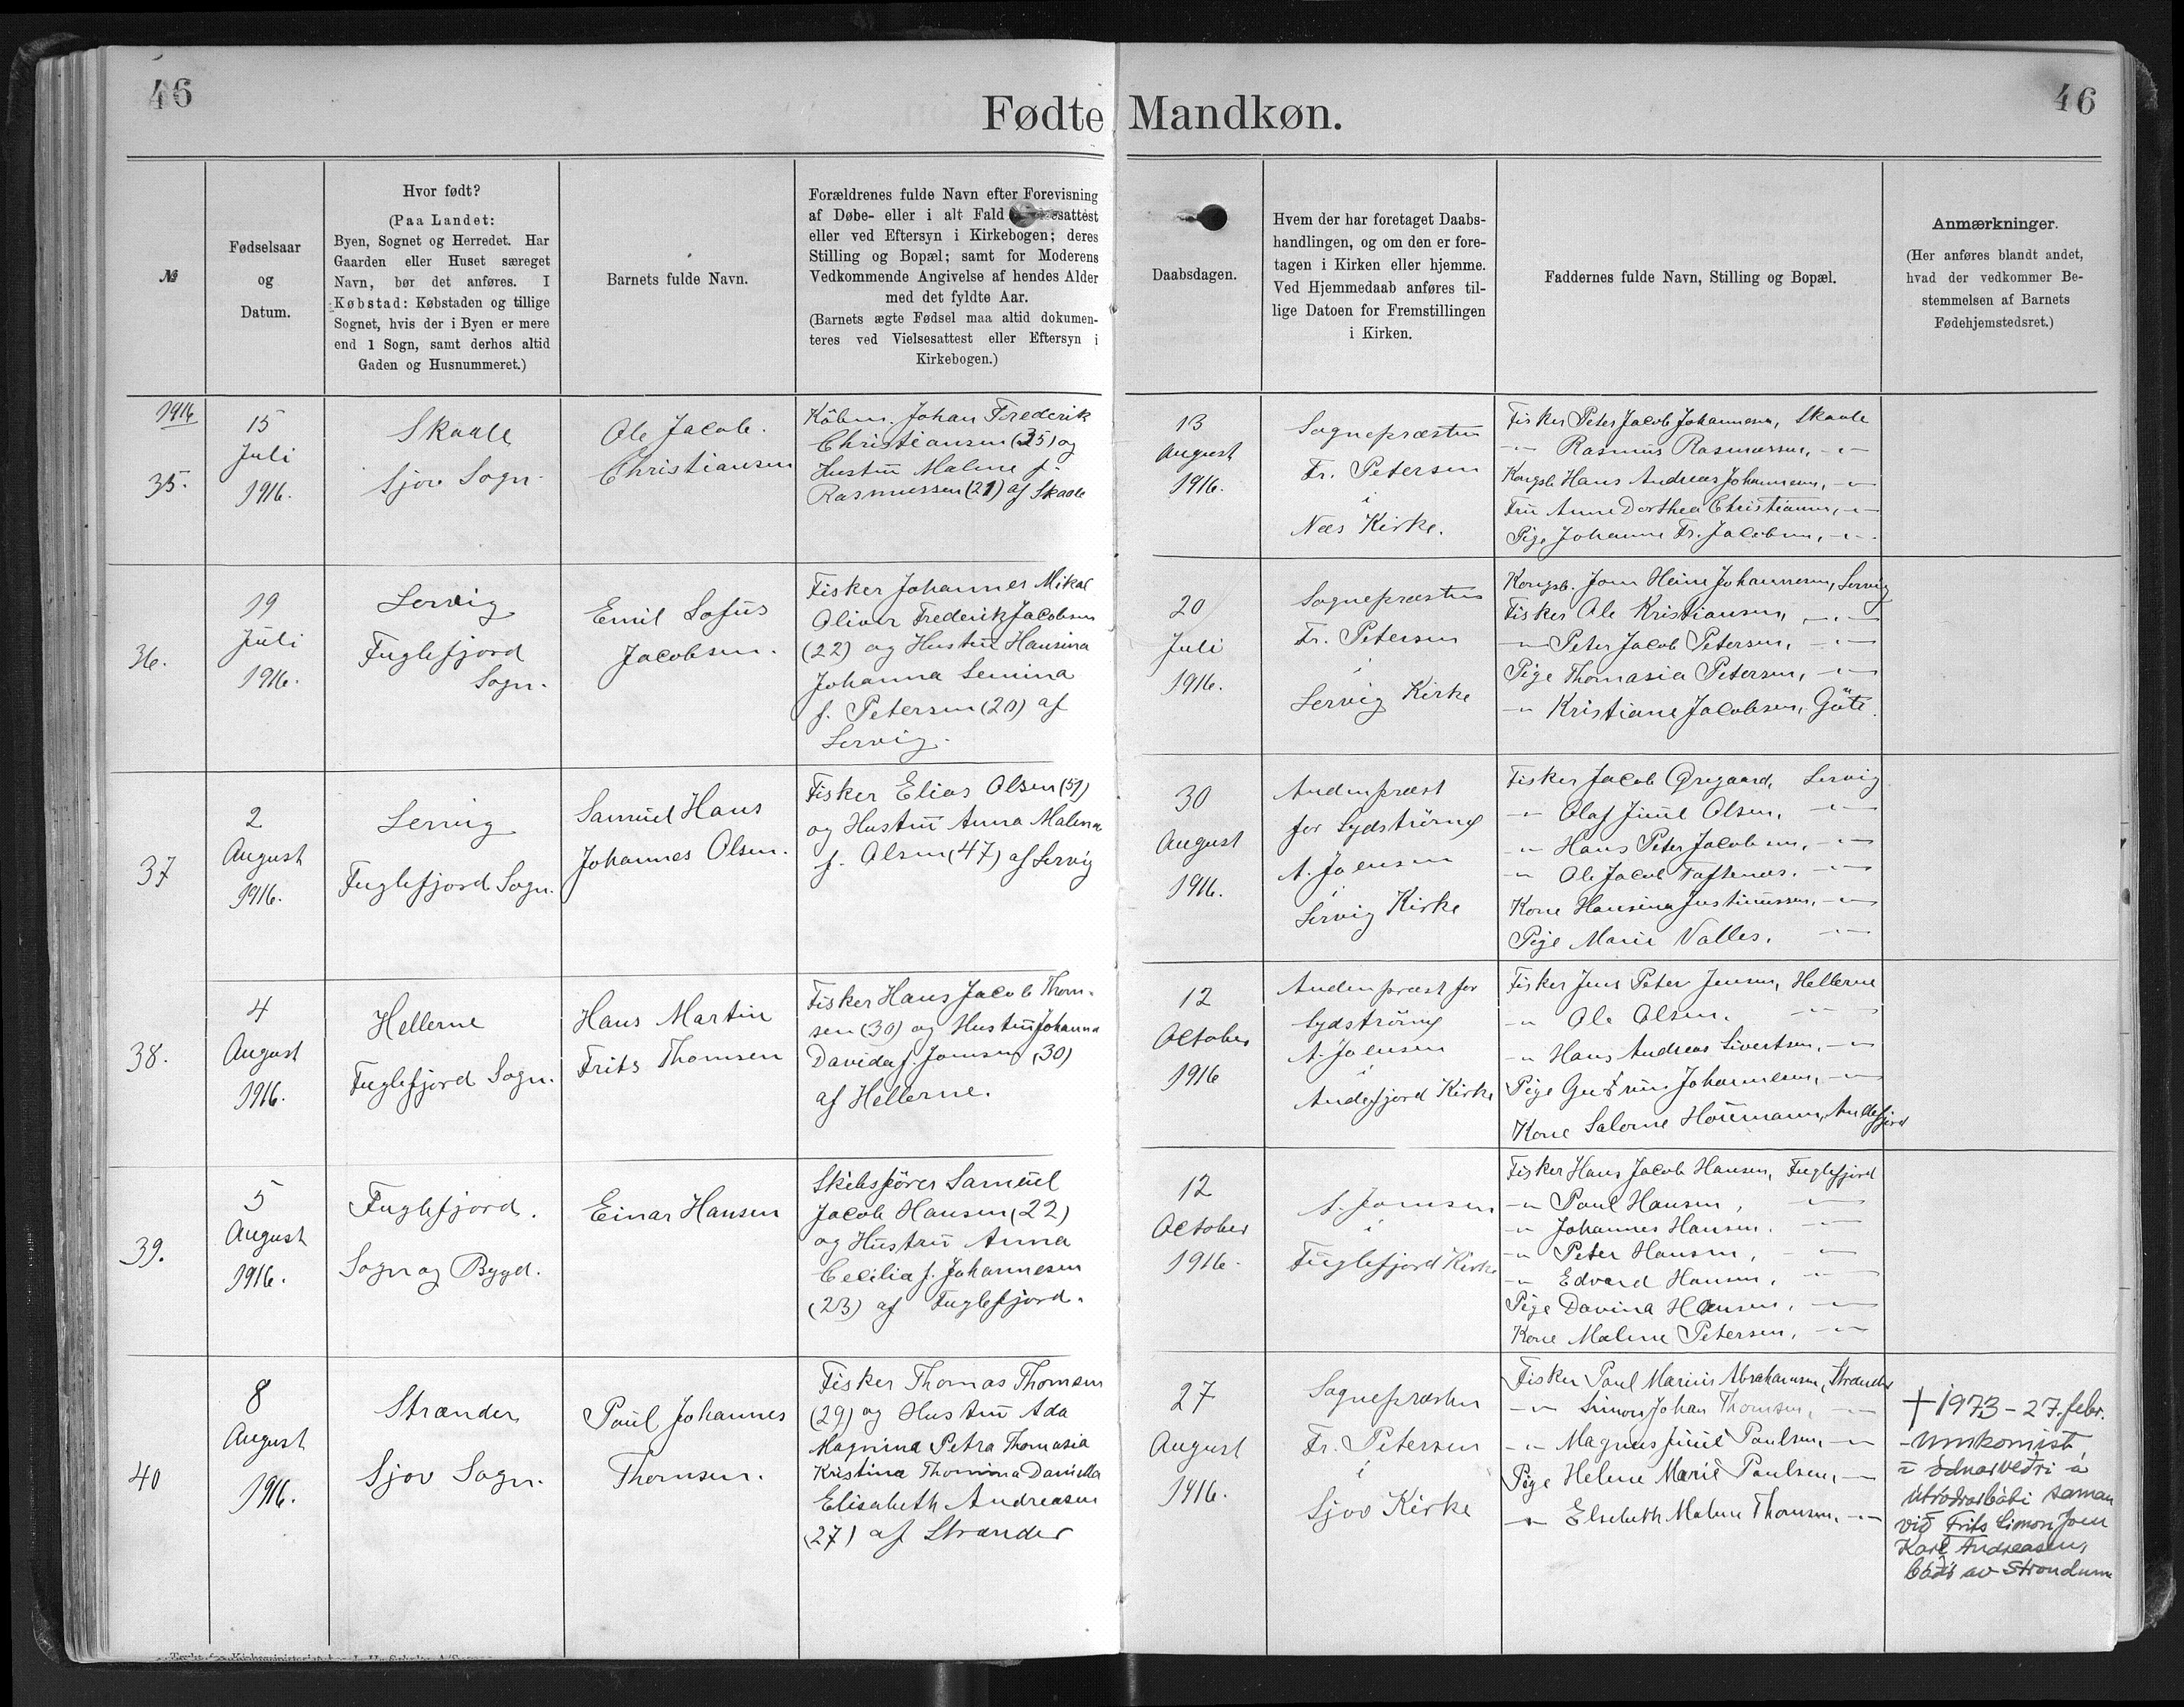 46
Fødte Mandkøn.
46
№
Fødselsaar
og
Datum.
Hvor født?
(Paa Landet:
Byen, Sognet og Herredet. Har
Gaarden eller Huset særeget
Navn, bør det anføres. I
Købstad: Købstaden og tillige
Sognet, hvis der i Byen er mere
end 1 Sogn, samt derhos altid
Gaden og Husnummeret.)
Barnets fulde Navn.
Forældrenes fulde Navn efter Forevisning
af Døbe- eller i alt Fald
eller ved Eftersyn i Kirkebogen; deres
Stilling og Bopæl; samt for Moderens
Vedkommende Angivelse af hendes Alder
med det fyldte Aar.
(Barnets ægte Fødsel maa altid dokumen-
teres ved Vielsesattest eller Eftersyn i
Kirkebogen.)
Daabsdagen.
Hvem der har foretaget Daabs-
handlingen, og om den er fore-
tagen i Kirken eller hjemme.
Ved Hjemmedaab anføres til-
lige Datoen for Fremstillingen
i Kirken.
Faddernes fulde Navn, Stilling og Bopæl.
Anmærkninger.
(Her anføres blandt andet,
hvad der vedkommer Be-
stemmelsen af Barnets
Fødehjemstedsret.)
1916
35.
15
Juli
1916.
Skaale
Sjov Sogn.
Ole Jacob.
Christiansen
Købm. Johan Frederik
Christiansen (35) og
Hustrü Malene f.
Rasmussen (21) af Skaale
13
August
1916.
Sognepræsten
Fr. Petersen
i
Næs Kirke.
Fisker Peter Jacob Johannesen, Skaale
-"- Rasmus Rasmussen, -"-
Kongsb. Hans Andreas Johannesen, -"-
Frü Anne Dorthea Christiansen, -"-
Pige Johanne Fr. Jacobsen, -"-
36.
19
Juli
1916.
Lervig
Fuglefjord
Sogn.
Emil Sofüs
Jacobsen.
Fisker Johannes Mikal
Oliver Frederik Jacobsen
(22) og Hustrü Hansina
Johanna Semina
f. Petersen (20) af
Lervig.
20
Juli
1916.
Sognepræsten
Fr. Petersen
i
Lervig Kirke
Kongsb. Joen Heine Johannesen, Lervig
Fisker Ole Kristiansen, -"-
-"- Peter Jacob Petersen, -"-
Pige Thomasia Petersen, -"-
-"- Kristiane Jacobsen, Göte.
37
2
August
1916.
Lervig
Fuglefjord Sogn.
Samüel Hans
Johannes Olsen.
Fisker Elias Olsen (51)
og Hustrü Anna Malena
f. Olsen (47) af Lervig
30
August
1916.
Andenpræst
for Sydströmø
A. Joensen
i
Lervig Kirke
Fisker Jacob Øregaard, Lervig
-"- Olaf Juul Olsen, -"-
-"- Hans Peter Jacobsen, -"-
-"- Ole Jacob Toftenæs. -"-
Kone Hansina Justinussen, -"-
Pige Marie Valles, -"-
38.
4
August
1916.
Hellerne
Fuglefjord Sogn.
Hans Martin
Frits Thomsen
Fisker Hans Jacob Thom-
sen (30) og Hustrü Johanna
Davida f. Joensen (30)
af Hellerne.
12
October
1916
Andenpræst for
Sydströmø
A. Joensen
i
Andefjord Kirke
Fisker Jens Peter Jensen, Hellerne
-"- Ole Olsen. -"-
-"- Hans Andreas Sivertsen, -"-
Pige Gudrun Johannesen, -"-
Kone Salome Houmann, Andefjord
39.
5
August
1916.
Fuglefjord.
Sogn og Bygd.
Einar Hansen
Skibsfører Samüel
Jacob Hansen (22)
og Hüstrü Anna
Cecilia f. Johannesen
(23) af Fuglefjord.
12
October
1916.
A. Joensen
i
Fuglefjord Kirke
Fisker Hans Jacob Hansen, Fuglefjord
-"- Poul Hansen, -"-
-"- Johannes Hansen. -"-
-"- Peter Hansen, -"-
-"- Edvard Hansen, -"-
Pige Davina Hansen, -"-
Kone Malene Petersen, -"-
40
8
August
1916.
Strænder
Sjov Sogn.
Poul Johannes
Thomsen.
Fisker Thomas Thomsen
(29) og Hustrü Ada
Magnina Petra Thomasia
Kristina Thomina Daniella
Elisabeth Andreasen
(27) af Strænder
27
August
1916.
Sognepræsten
Fr. Petersen
i
Sjov Kirke
Fisker Poul Marius Abrahamsen, Strænder
-"- Simon Johan Thomsen, -"-
-"- Magnus Juul Poulsen, -"-
Pige Helene Marie Poulsen, -"-
-"- Elsebeth Malene Thomsen, -"-
† 1973 - 27. febr.
- umkomist
í ódnarveðri á
útróðrarbáti saman
við Frits Simon Joen
Karl Andreasen,
báðir av Strondum